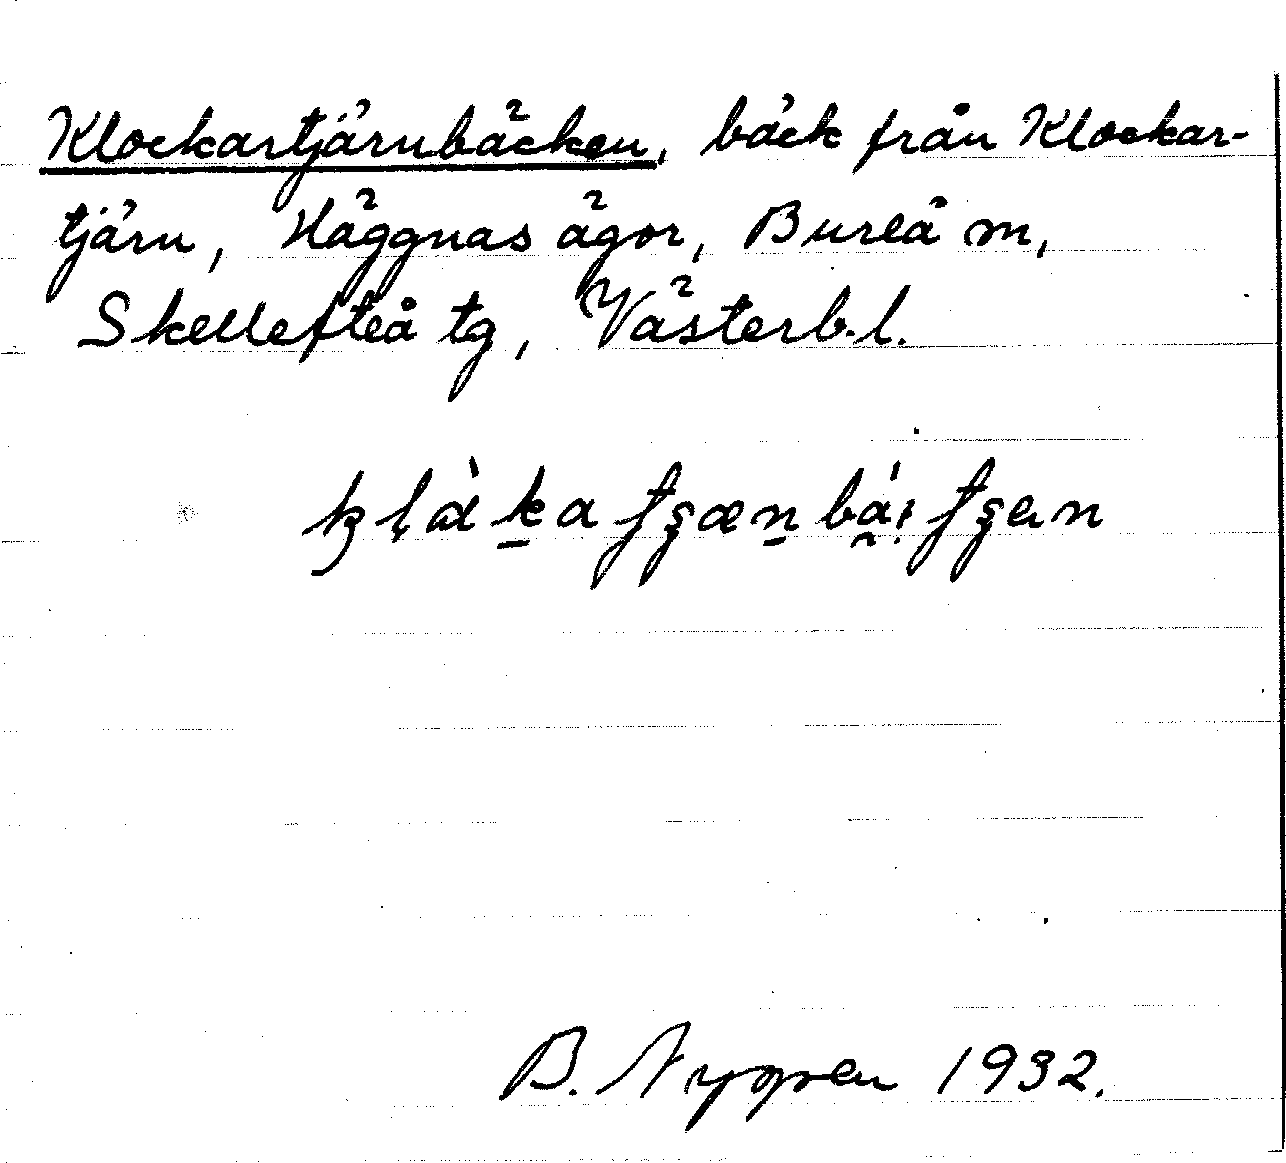 Klockartjärnbäcken, bäck från Klockar-
tjärn, Häggnas ägor, Bureå m,
Skellefteå tg, Västerb.l.
B. Nygren 1932.